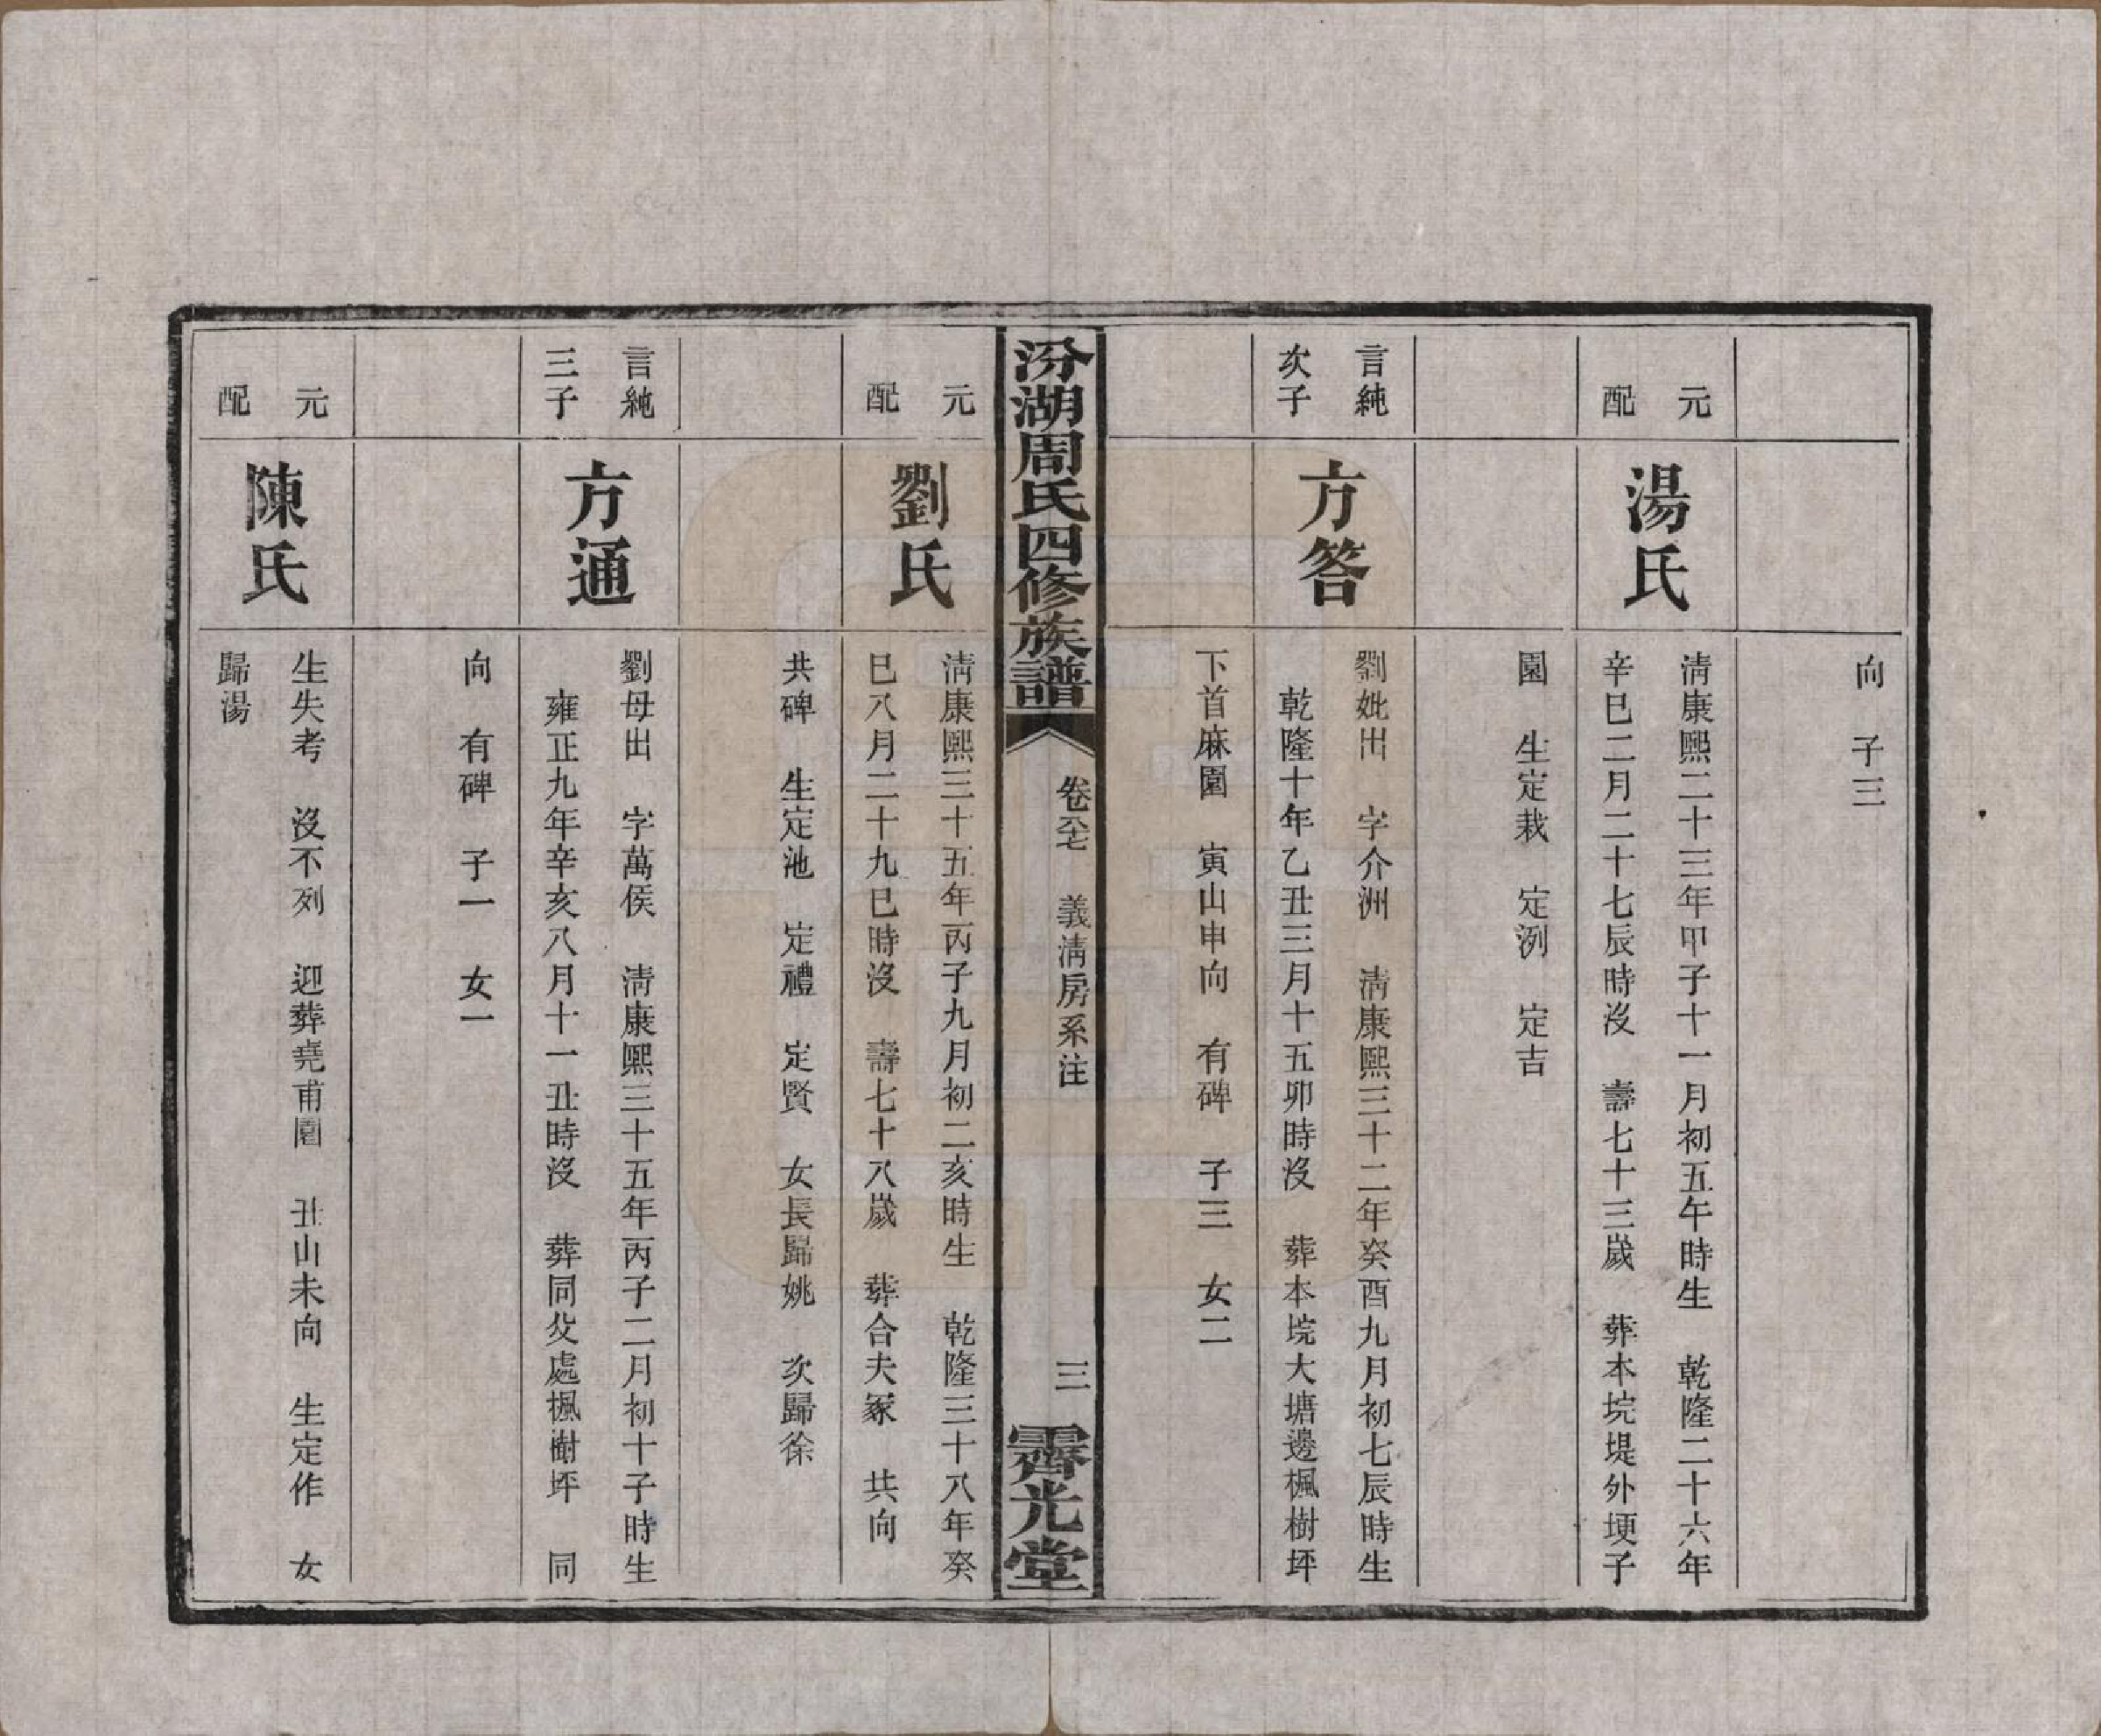 向　子三
元
配
湯氏
淸康熙二十三年甲子十一月初五午時生　乾隆二十六年
辛巳二月二十七辰時沒　壽七十三歲　葬本垸堤外埂子
園　生定栽　定洌　定吉
言純
次子
方答
劉妣出　字介洲　淸康熙三十二年癸酉九月初七辰時生
乾隆十年乙丑三月十五卯時沒　葬本垸大塘邊楓樹坪
下首麻園　寅山申向　有碑　子三　女二
汾湖周氏四修族譜
卷六七　義淸房系注
三
霽光堂
元
配
劉氏
淸康熙三十五年丙子九月初二亥時生　乾隆三十八年癸
巳八月二十九巳時沒　壽七十八歲　葬合夫冢　共向
共碑　生定池　定禮　定賢　女長歸姚　次歸徐
言純
三子
方通
劉母出　字萬侯　淸康熙三十五年丙子二月初十子時生
雍正九年辛亥八月十一丑時沒　葬同父處楓樹坪　同
向　有碑　子一　女一
元
配
陳氏
生失考　沒不列　迎葬堯甫園　丑山未向　生定作　女
歸湯